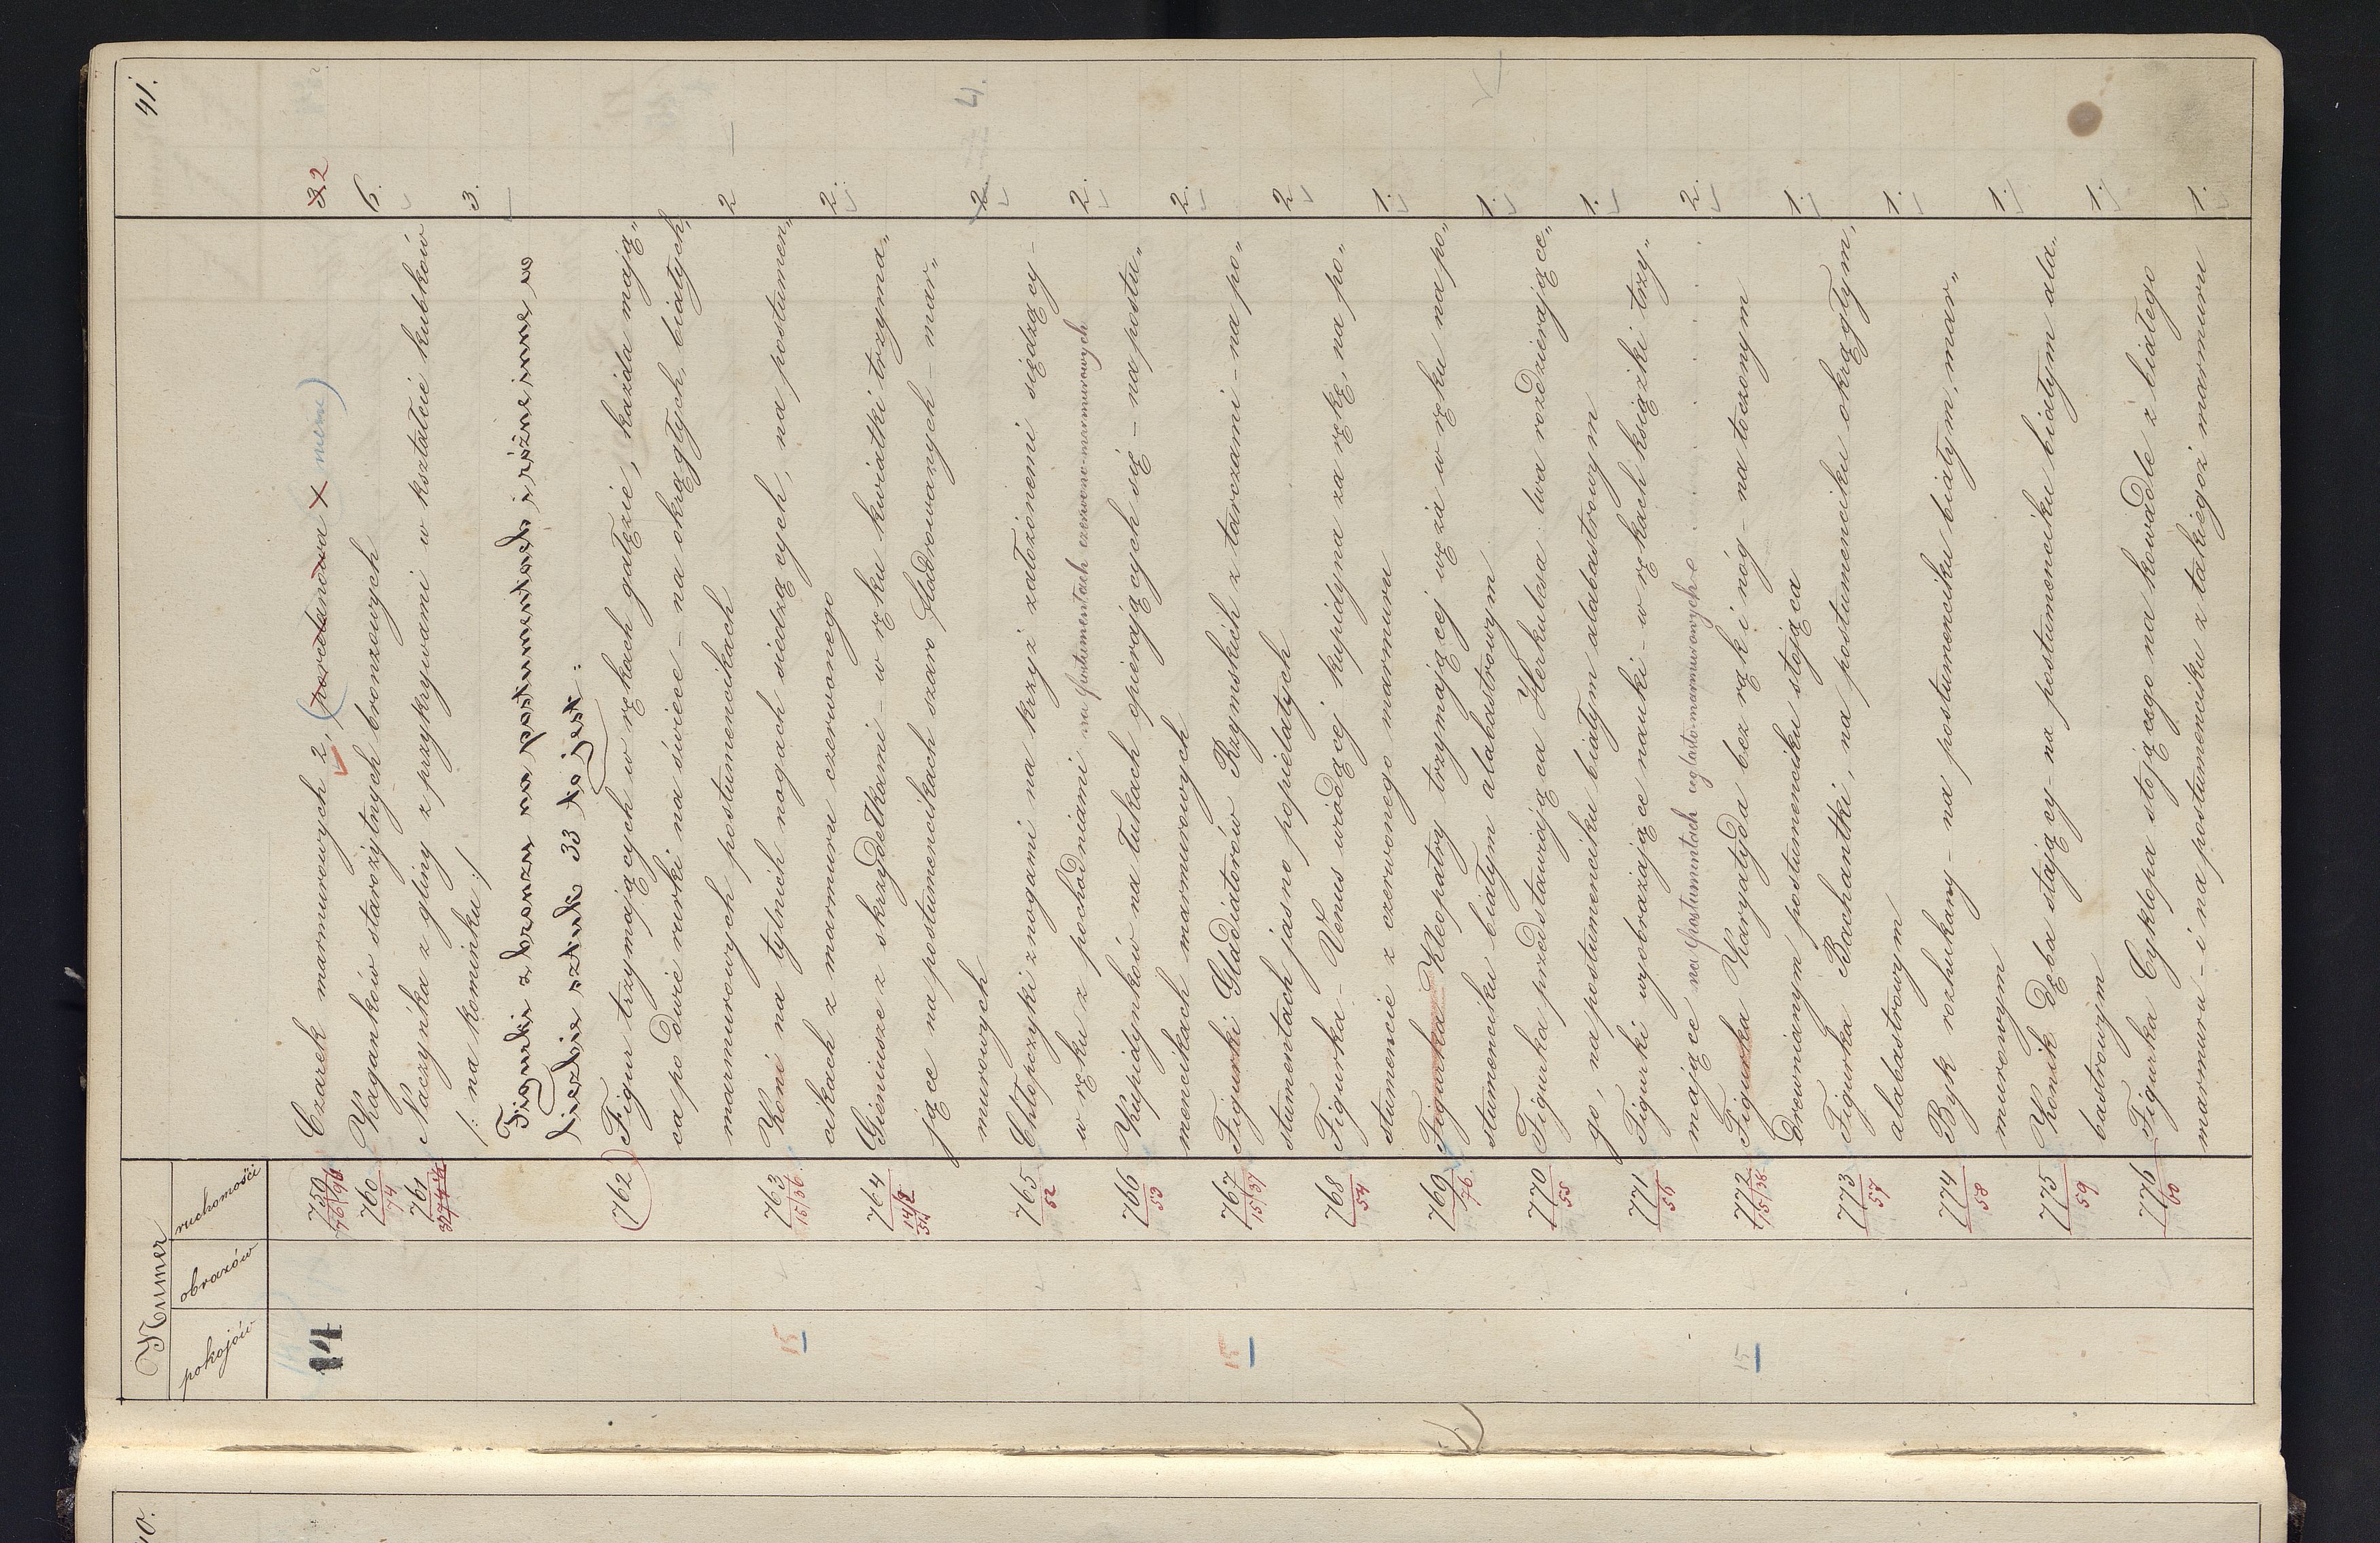 41.
Numer
pokojów obrazów ruchomości
14 750 Czarek marmurowych 2, (porcelanowa x niem) 3 2
76/96
760 Kaganków starożytnych bronzowych 6.
74
761 Naczyńka z gliny z przykrywami w kształcie kubków 3.
/: na kominku :/
Figurki z bronzu na postumentach i różne inne w
liczbie sztuk 33 to jest:
762 Figur trzymających w rękach gałęzie, każda mają„
ca po dwie rurki na świece – na okrągłych, białych,
marmurowych postumencikach 2
763 Koni na tylnich nogach siedzących, na postumen„
15/36
15 cikach z marmuru czerwonego 2.
764 Gieniusze z skrzydełkami – w ręku kwiatki trzyma„
jące na postumencikach szaro fladrowanych – mar„
murowych 2. 4.
765 Chłopczyki z nogami na krzyż założonemi siędzący –
52
w ręku z pochodniami na postumentach czerwono-marmurowych 2.
766 Kupidynków na łukach opierających się – na postu„
53
mencikach marmurowych 2.
767 Figurki Gladiatorów Rzymskich z tarczami – na po„
15/37
15 stumentach jasno popielatych 2
768 Figurka – Venus wiodącej kupidyna za rękę, na po„
54
stumencie z czerwonego marmuru 1.
769 Figurka Kleopatry trzymającej węża w ręku na po„
76
stumenciku białym alabastrowym 1.
770 Figurka przedstawiająca Herkulesa lwa rozdzierające„
55
go, na postumenciku białym alabastrowym 1.
771 Figurki wyobrażające nauki – w rękach książki trzy„
56
mające na postumentach ceglasto marmurowych 2.
772 Figurka Karyatyda bez rąk i nóg – na toczonym
15/38
15 drewnianym postumenciku stojąca 1.
773 Figurka Bachantki, na postumenciku okrągłym,
57
alabastrowym 1.
774 Byk rozhukany – na postumenciku białym, mar„
58
murowym 1.
775 Konik dęba stający – na postumenciku białym ala„
59
bastrowym 1.
776 Figurka Cyklopa stojącego na kowadle z białego
60
marmuru – i na postumenciku z takiegoż marmuru 1.